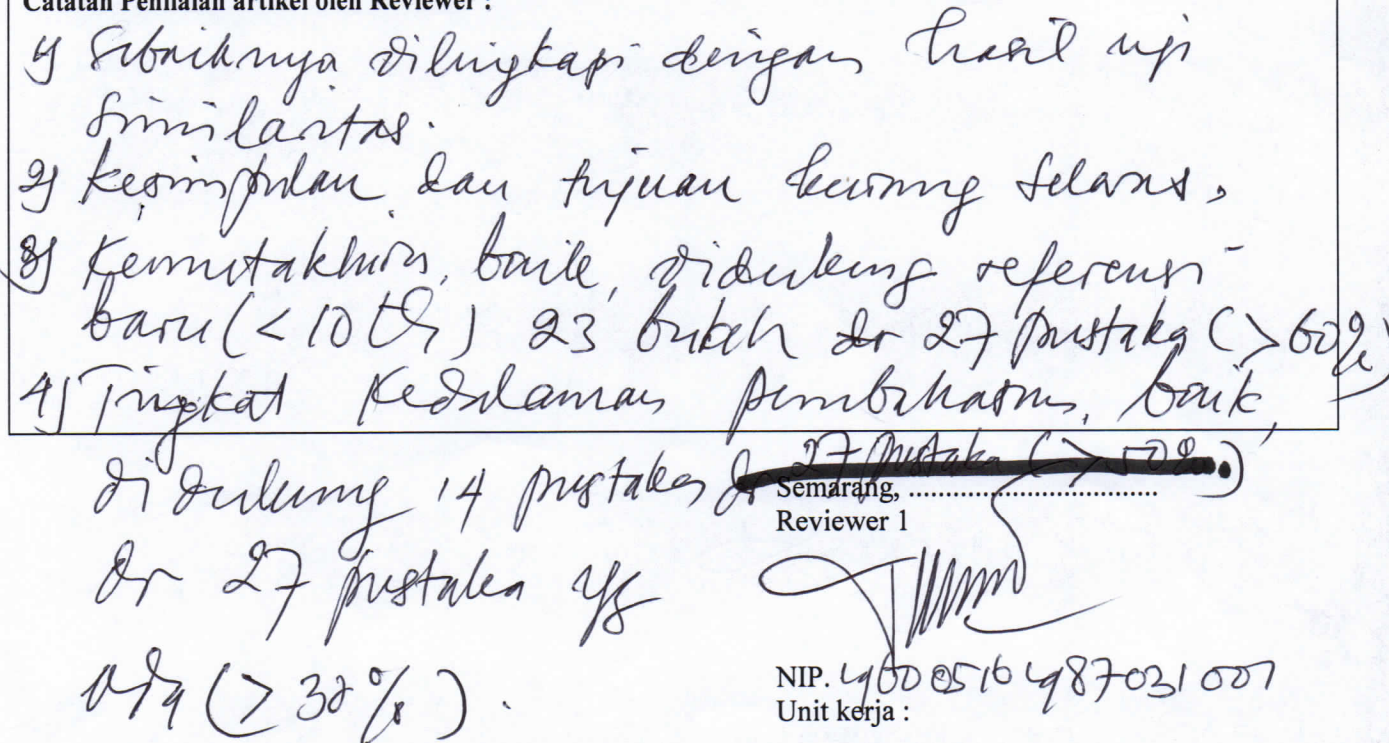 Catatan Penilaian artikel oleh Reviewer :
1) Sebaiknya dilengkapi dengan hasil uji
Similaritas.
2) Kesimpulan dan tujuan kurang selaras.
3) Kemutakhiran, baik, didukung referensi
baru (< 10 th) 23 buah dr 27 pustaka (> 60%)
4) Tingkat kedalaman pembahasan, baik,
didukung 14 pustaka dr 27 pustaka (> 50%.)
Semarang, ................................
Reviewer 1
dr 27 pustaka yg
ada (> 30%).
NIP. 196005161987031001
Unit kerja :